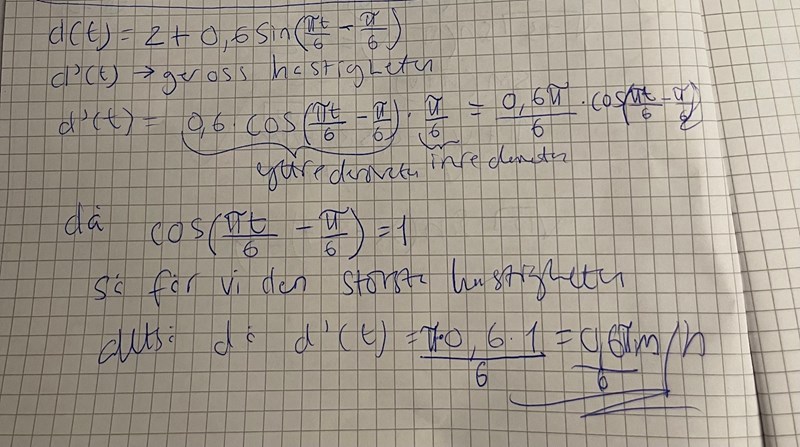 d(t) = 2 + 0,6 sin(πt/6 - π/6)
d'(t) → ger oss hastigheten
d'(t) = 0,6 · cos(πt/6 - π/6) · π/6 = 0,6π/6 · cos(πt/6 - π/6)
yttre derivatan inre derivatan
då cos(πt/6 - π/6) = 1
så får vi den största hastigheten
alltså då d'(t) = π·0,6·1/6 = 0,6π/6 m/h